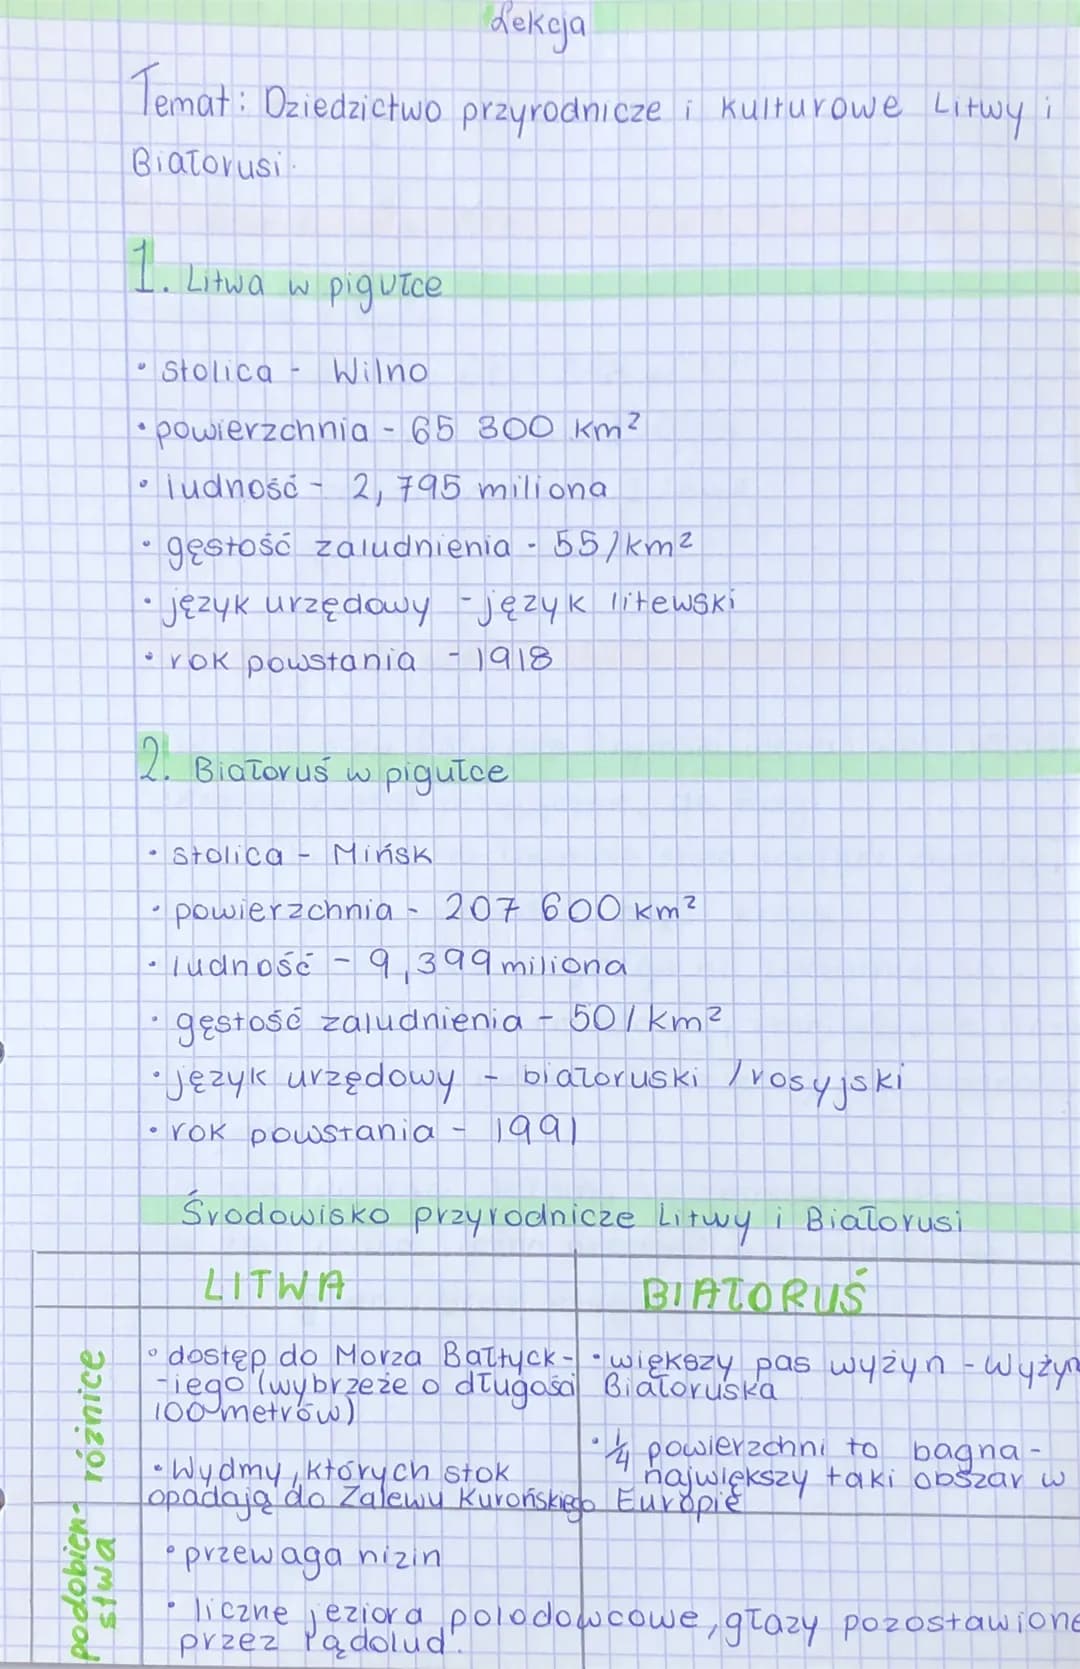 Lekcja
Temat: Dziedzictwo przyrodnicze i kulturowe Litwy i
Białorusi.
1. Litwa w pigułce
• stolica - Wilno
• powierzchnia - 65 300 km²
• ludność - 2,795 miliona
• gęstość zaludnienia - 55/km²
• język urzędowy - język litewski
• rok powstania - 1918
2. Białoruś w pigułce
• stolica - Mińsk
• powierzchnia - 207 600 km²
• ludność - 9,399 miliona
• gęstość zaludnienia - 50/km²
• język urzędowy - białoruski /rosyjski
• rok powstania - 1991
Środowisko przyrodnicze Litwy i Białorusi
LITWA
BIAŁORUŚ
różnice
• dostęp do Morza Bałtyck-
-iego (wybrzeże o długości
100 metrów)
• Wydmy, których stok
opadają do Zalewu Kurońskiego
• większy pas wyżyn - Wyżyn
Białoruska
• ¼ powierzchni to bagna -
największy taki obszar w
Europie
podobień-
stwa
• przewaga nizin
• liczne jeziora polodowcowe, głazy pozostawione
przez lądolud.